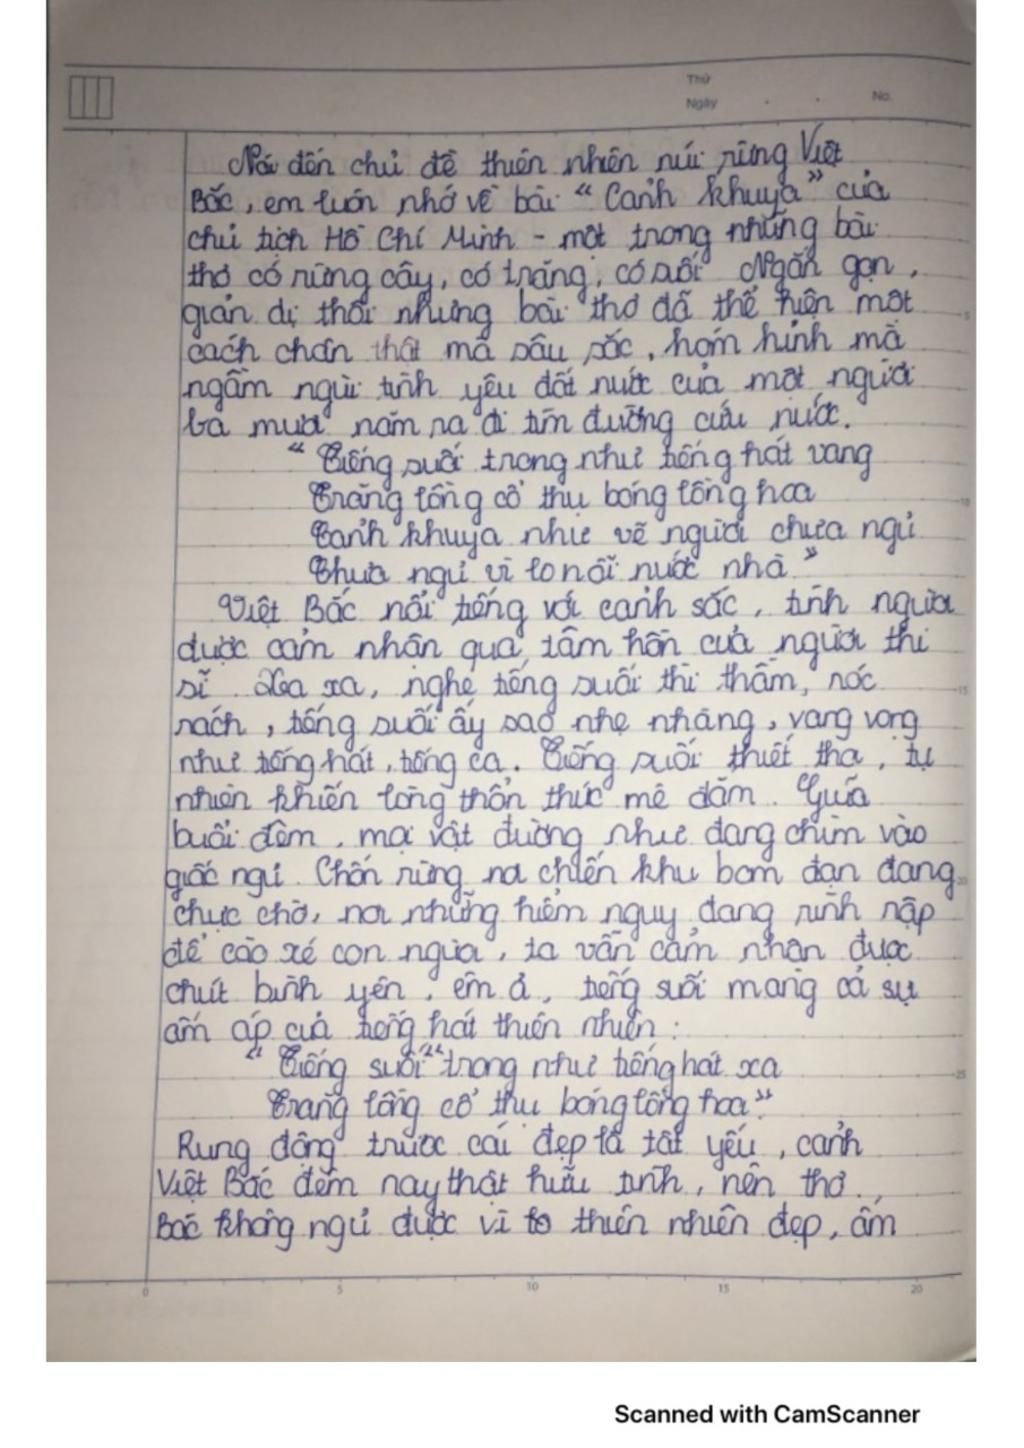 Thứ
Ngày . . No.
Nói đến chủ đề thiên nhiên núi rừng Việt
Bắc, em luôn nhớ về bài "Cảnh khuya" của
chủ tịch Hồ Chí Minh - một trong những bài
thơ có rừng cây, có trăng, có suối. Ngắn gọn,
giản dị thôi nhưng bài thơ đã thể hiện một
cách chân thật mà sâu sắc, hóm hỉnh mà
ngậm ngùi tình yêu đất nước của một người
ba mươi năm ra đi tìm đường cứu nước.
"Tiếng suối trong như tiếng hát vang
Trăng lồng cổ thụ bóng lồng hoa
Cảnh khuya như vẽ người chưa ngủ
Chưa ngủ vì lo nỗi nước nhà"
Việt Bắc nổi tiếng với cảnh sắc, tình người
được cảm nhận qua tâm hồn của người thi
sĩ. Xa xa, nghe tiếng suối thì thầm, róc
rách, tiếng suối ấy sao nhẹ nhàng, vang vọng
như tiếng hát, tiếng ca. Tiếng suối thiết tha, tự
nhiên khiến lòng thổn thức mê đắm. Giữa
buổi đêm, mọi vật dường như đang chìm vào
giấc ngủ. Chốn rừng nơi chiến khu bom đạn đang
chực chờ, nơi những hiểm nguy đang rình rập
để cào xé con người, ta vẫn cảm nhận được
chút bình yên, êm ả, tiếng suối mang cả sự
ấm áp của tiếng hát thiên nhiên:
"Tiếng suối" trong như tiếng hát xa
Trăng lồng cổ thụ bóng lồng hoa"
Rung động trước cái đẹp là tất yếu, cảnh
Việt Bắc đêm nay thật hữu tình, nên thơ.
Bác không ngủ được vì thiên nhiên đẹp, ấm
0 5 10 15 20
Scanned with CamScanner